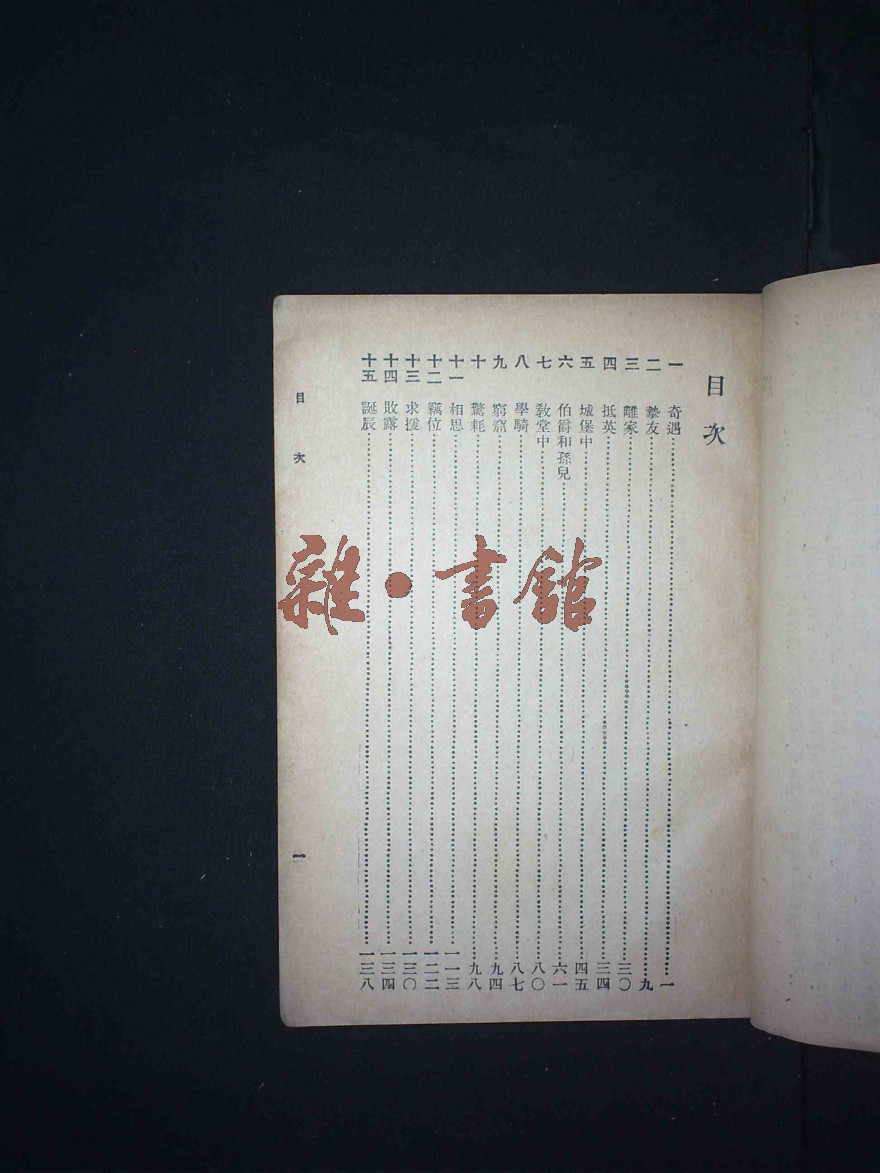 目次
一 奇遇 一
二 摯友 九
三 離家 三〇
四 抵英 三四
五 城堡中 四五
六 伯爵和孫兒 六一
七 教堂中 八〇
八 學騎 八七
九 窮窟 九四
十 驚耗 九八
十一 相思 一一三
十二 竊位 一二二
十三 求援 一三〇
十四 敗露 一三四
十五 誕辰 一三八
目次
一
雜·書館